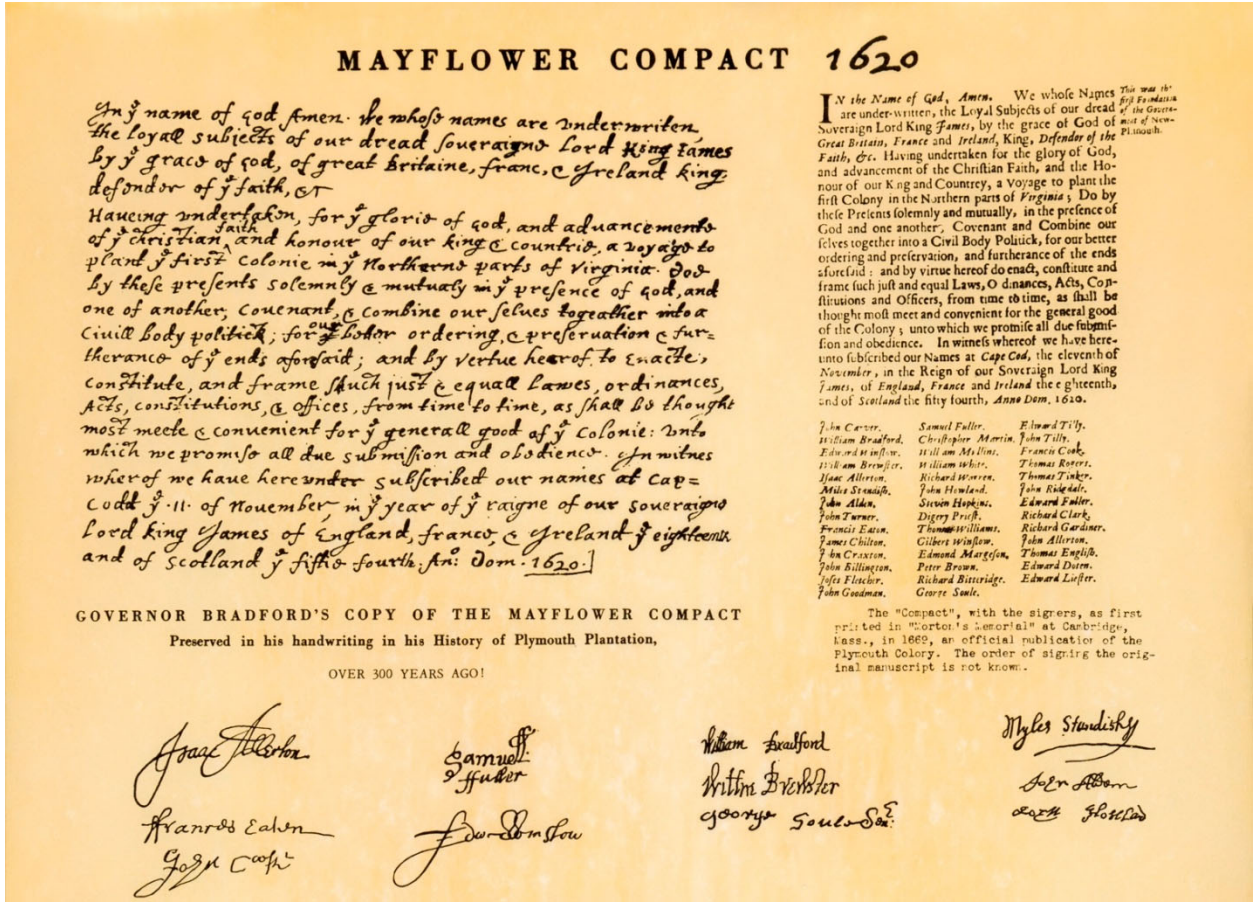 MAYFLOWER COMPACT 1620
In yͤ name of god Amen. We whose names are vnderwriten,
the loyall subjects of our dread soveraigne Lord King James
by yͤ grace of god, of great Britaine, franc, & Ireland king,
defender of yͤ faith, &c
Haueing vndertaken, for yͤ glorie of god, and advancemente
of yͤ christian faith and honour of our king & countrie, a voyage to
plant yͤ first colonie in yͤ Northerne parts of Virginia. Doe
by these presents solemnly & mutualy in yͤ presence of god, and
one of another, couenant, & combine our selues togeather into a
Ciuill body politick; for our better ordering, & preseruation & fur=
therance of yͤ ends aforesaid; and by vertue hearof to Enacte,
constitute, and frame shuch just & equall lawes, ordinances,
Acts, constitutions, & offices, from time to time, as shall be thought
most meete & conuenient for yͤ generall good of yͤ Colonie: vnto
which we promise all due submission and obedience. In witnes
wherof we have herevnder subscribed our names at Cap=
Codd yͤ .11. of November, in yͤ year of yͤ raigne of our soueraigne
Lord king James of England, france, & Ireland yͤ eighteenth
and of Scotland yͤ fiftie fourth. An͞o: Dom. 1620.]
GOVERNOR BRADFORD'S COPY OF THE MAYFLOWER COMPACT
Preserved in his handwriting in his History of Plymouth Plantation,
OVER 300 YEARS AGO!
IN the Name of God, Amen. We whoſe Names
are under-written, the Loyal Subjects of our dread
Soveraign Lord King James, by the grace of God of
Great Britain, France and Ireland, King, Defendor of the
Faith, &c. Having undertaken for the glory of God,
and advancement of the Chriſtian Faith, and the Ho-
nour of our King and Countrey, a Voyage to plant the
firſt Colony in the Northern parts of Virginia; Do by
theſe Preſents ſolemnly and mutually, in the preſence of
God and one another, Covenant and Combine our
ſelves together into a Civil Body Politick, for our better
ordering and preſervation, and furtherance of the ends
aforeſaid: and by virtue hereof do enact, conſtitute and
frame ſuch juſt and equal Laws, O dinances, Acts, Con-
ſtitutions and Officers, from time to time, as ſhall be
thought moſt meet and convenient for the general good
of the Colony; unto which we promiſe all due ſubmiſ-
ſion and obedience. In witneſs whereof we have here-
unto ſubſcribed our Names at Cape Cod, the eleventh of
November, in the Reign of our Soveraign Lord King
James, of England, France and Ireland the e ghteenth,
and of Scotland the fifty fourth, Anno Dom. 1620.
This was the
firſt Foundation
of the Govern-
ment of New-
Plimouth.
John Carver. Samuel Fuller. Edward Tilly.
William Bradford. Chriſtopher Martin. John Tilly.
Edward Winſlow. William Mullins. Francis Cook.
William Brewſter. William White. Thomas Rogers.
Iſaac Allerton. Richard Warren. Thomas Tinker.
Miles Standiſh. John Howland. John Ridgdale.
John Alden. Steven Hopkins. Edward Fuller.
John Turner. Digery Prieſt. Richard Clark.
Francis Eaton. Thomas Williams. Richard Gardiner.
James Chilton. Gilbert Winſlow. John Allerton.
John Craxton. Edmond Margeſon. Thomas Engliſh.
John Billington. Peter Brown. Edward Doten.
Joſes Fletcher. Richard Bitteridge. Edward Lieſter.
John Goodman. George Soule.
The "Compact", with the signers, as first
printed in "Morton's Memorial" at Cambridge,
Mass., in 1669, an official publication of the
Plymouth Colony. The order of signing the orig-
inal manuscript is not known.
Isaac Allerton
Samuell ffuller
William Bradford
Myles Standish
Willm Brewster
John Alden
ffrancis Eaten
Edw Winslow
George Soule Senr
John Howland
John Cooke